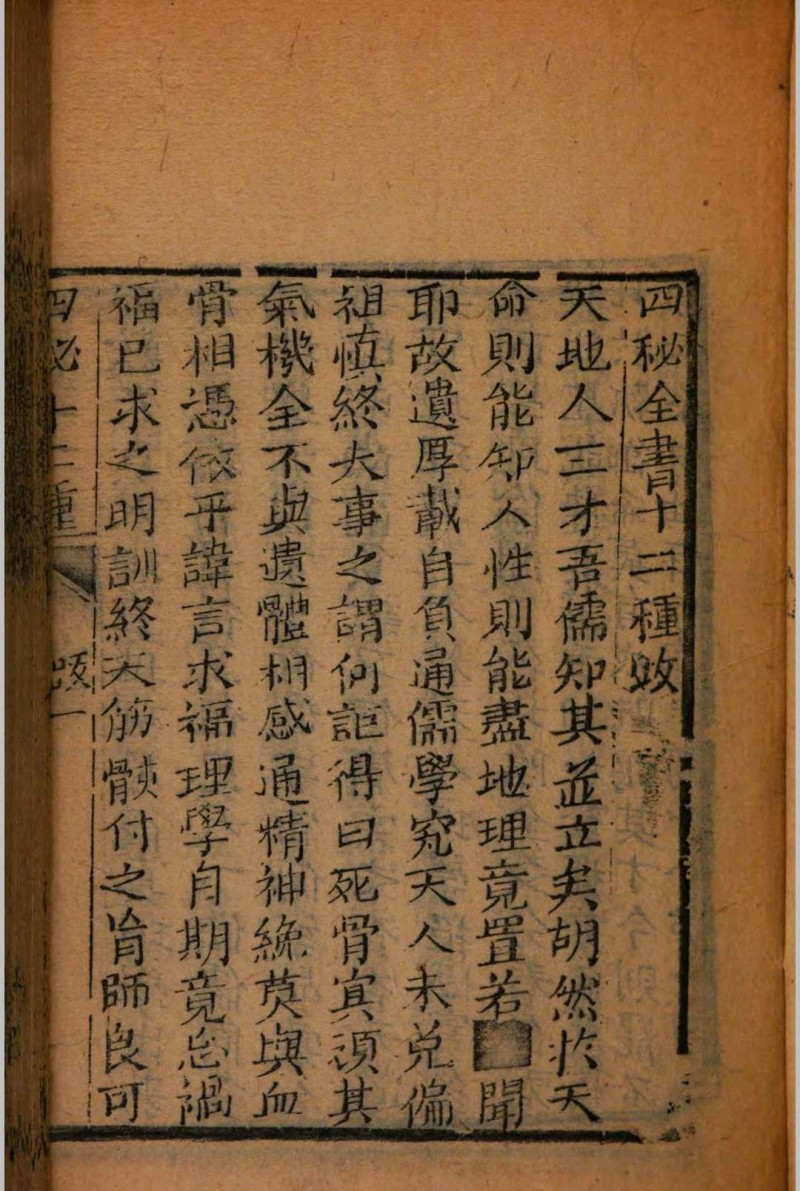 四秘全書十二種敘
天地人三才吾儒知其並立矣胡然於天
命則能知人性則能盡地理竟置若聞
耶故遺厚載自負通儒學究天人未免偏
祖慎終大事之謂何詎得曰死骨寅湏其
氣機全不與遺體相感通精神絶莫與血
骨相憑依乎諱言求福理學自期竟忘禍
福已求之明訓終天筋骸付之盲師良可
四秘十二種 敘一